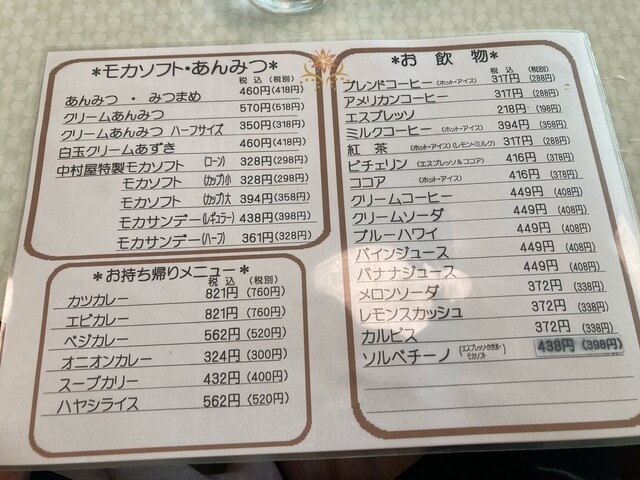 *モカソフト・あんみつ*
税込 (税別)
あんみつ ・ みつまめ 460円(418円)
クリームあんみつ 570円(518円)
クリームあんみつ ハーフサイズ 350円(318円)
白玉クリームあずき 460円(418円)
中村屋特製モカソフト (コーン) 328円(298円)
モカソフト (カップ)小 328円(298円)
モカソフト (カップ)大 394円(358円)
モカサンデー(レギュラー) 438円(398円)
モカサンデー(ハーフ) 361円(328円)
*お持ち帰りメニュー*
税込 (税別)
カツカレー 821円(760円)
エビカレー 821円(760円)
ベジカレー 562円(520円)
オニオンカレー 324円(300円)
スープカリー 432円(400円)
ハヤシライス 562円(520円)
*お飲物*
税込 (税別)
ブレンドコーヒー(ホット・アイス) 317円(288円)
アメリカンコーヒー 317円(288円)
エスプレッソ 218円(198円)
ミルクコーヒー (ホット・アイス) 394円(358円)
紅茶 (ホット・アイス)(レモン・ミルク) 317円(288円)
ビチェリン (エスプレッソ&ココア) 416円(378円)
ココア (ホット・アイス) 416円(378円)
クリームコーヒー 449円(408円)
クリームソーダ 449円(408円)
ブルーハワイ 449円(408円)
パインジュース 449円(408円)
バナナジュース 449円(408円)
メロンソーダ 372円(338円)
レモンスカッシュ 372円(338円)
カルピス 372円(338円)
ソルベチーノ (エスプレッソ・かき氷・モカソフト) 438円(398円)